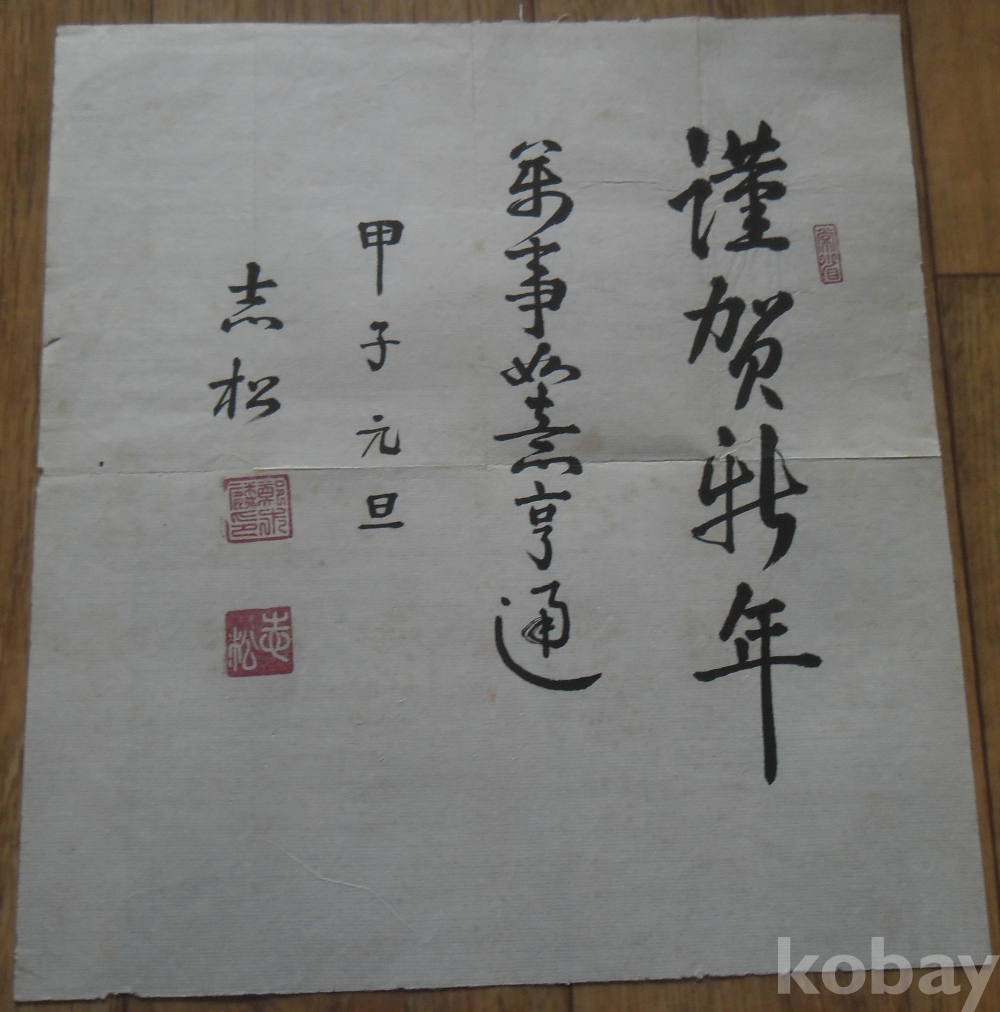 謹賀新年
萬事如意亨通
甲子元旦
志松
志松
kobay